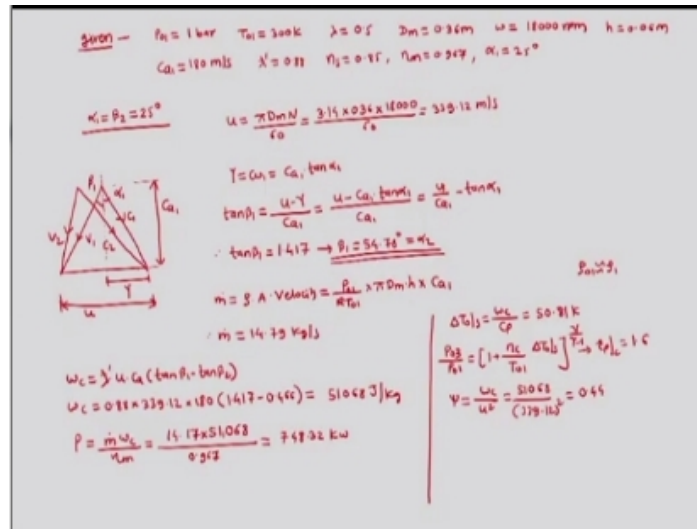 given — P01 = 1 bar T01 = 300K λ = 0.5 Dm = 0.36m ω = 18000 rpm h = 0.06m
Ca1 = 180 m/s λ' = 0.88 ηs = 0.85, ηm = 0.967, α1 = 25°
α1 = β2 = 25°
u = πDmN/60 = 3.14 × 0.36 × 18000/60 = 339.12 m/s
Y = Cω1 = Ca1 tanα1
tanβ1 = u-Y/Ca1 = u - Ca1 tanα1/Ca1 = u/Ca1 - tanα1
∴ tanβ1 = 1.417 → β1 = 54.78° = α2
β1 α1
Ca1
V2 V1 C2 C1
Y
u
ṁ = ρ.A.Velocity = P01/RT01 × πDm.h × Ca1
∴ ṁ = 14.79 kg/s
ρ01 ≈ ρ1
ωc = λ' u Ca (tanβ1 - tanβ2)
ωc = 0.88 × 339.12 × 180 (1.417 - 0.466) = 51068 J/kg
P = ṁωc/ηm = 14.17 × 51,068/0.967 = 748.32 kW
ΔT0)s = ωc/Cp = 50.81 K
P03/P01 = [1 + ηc/T01 ΔT0)s]^γ/γ-1 → rp)c = 1.6
Ψ = ωc/u² = 51068/(339.12)² = 0.44